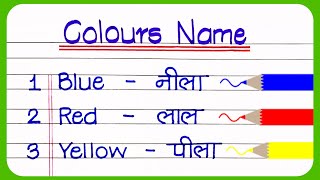 Colours Name
1 Blue - नीला
2 Red - लाल
3 Yellow - पीला